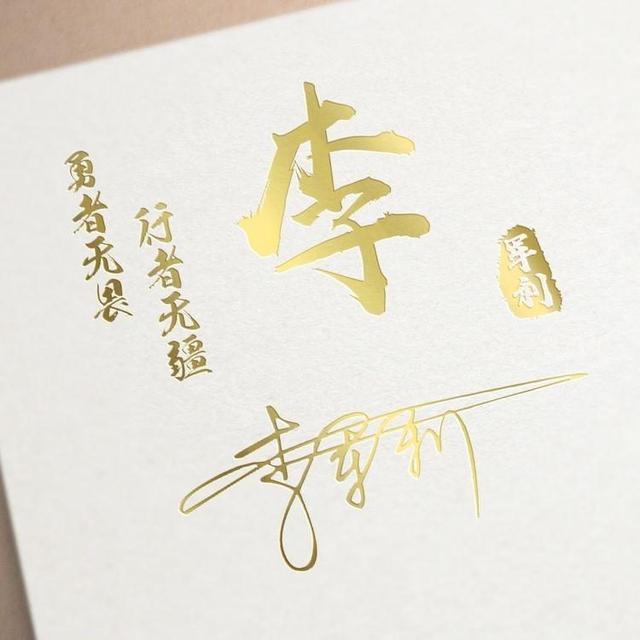 勇者无畏
行者无疆
李
军利
李军利